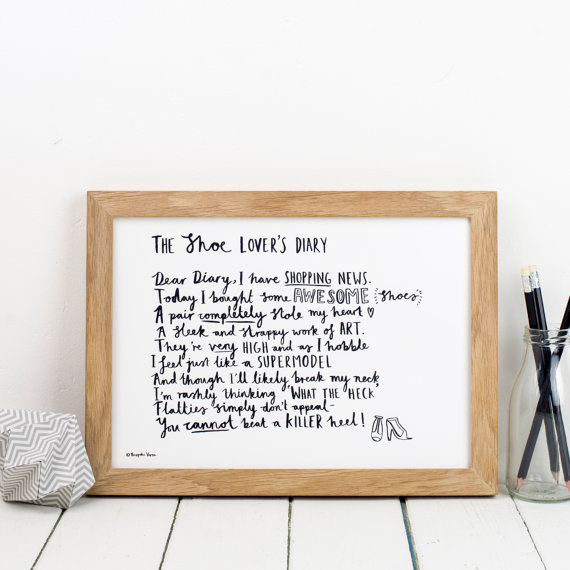 THE Shoe LOVER'S DIARY
Dear Diary, I have SHOPPING NEWS.
Today I bought some AWESOME shoes
A pair completely stole my heart
A sleek and strappy work of ART.
They're very HIGH and as I hobble
I feel just like a SUPERMODEL
And though I'll likely break my neck
I'm rashly thinking 'WHAT THE HECK'
Flatties simply don't appeal-
You cannot beat a KILLER heel!
© Bespoke Verse